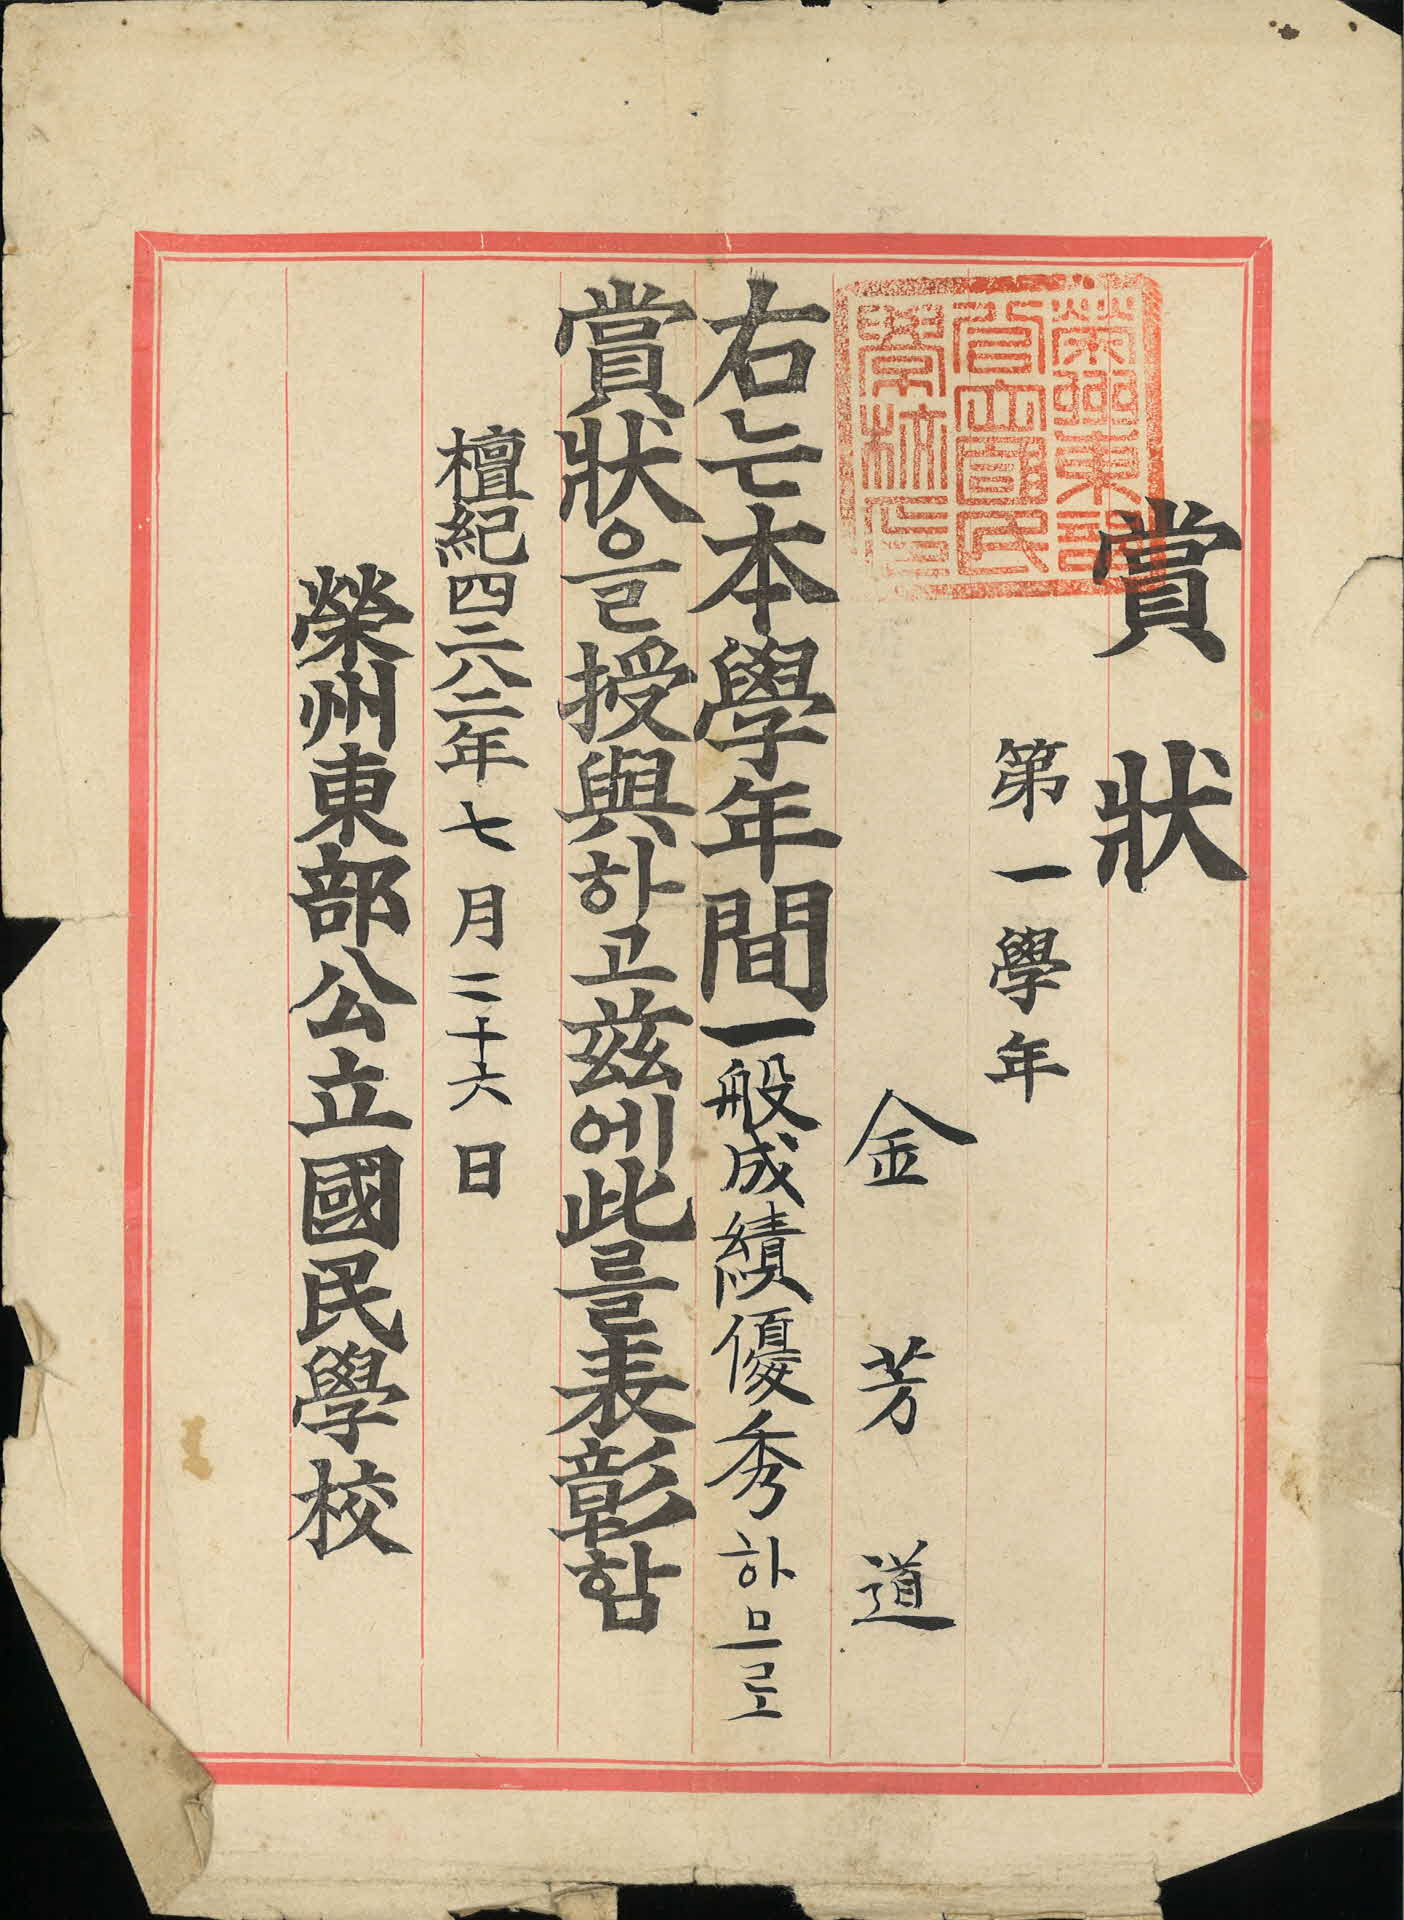 賞狀
第一學年
金芳道
右는本學年間一般成績優秀하므로
賞狀을授與하고玆에此를表彰함
檀紀四二八二年七月二十六日
榮州東部公立國民學校